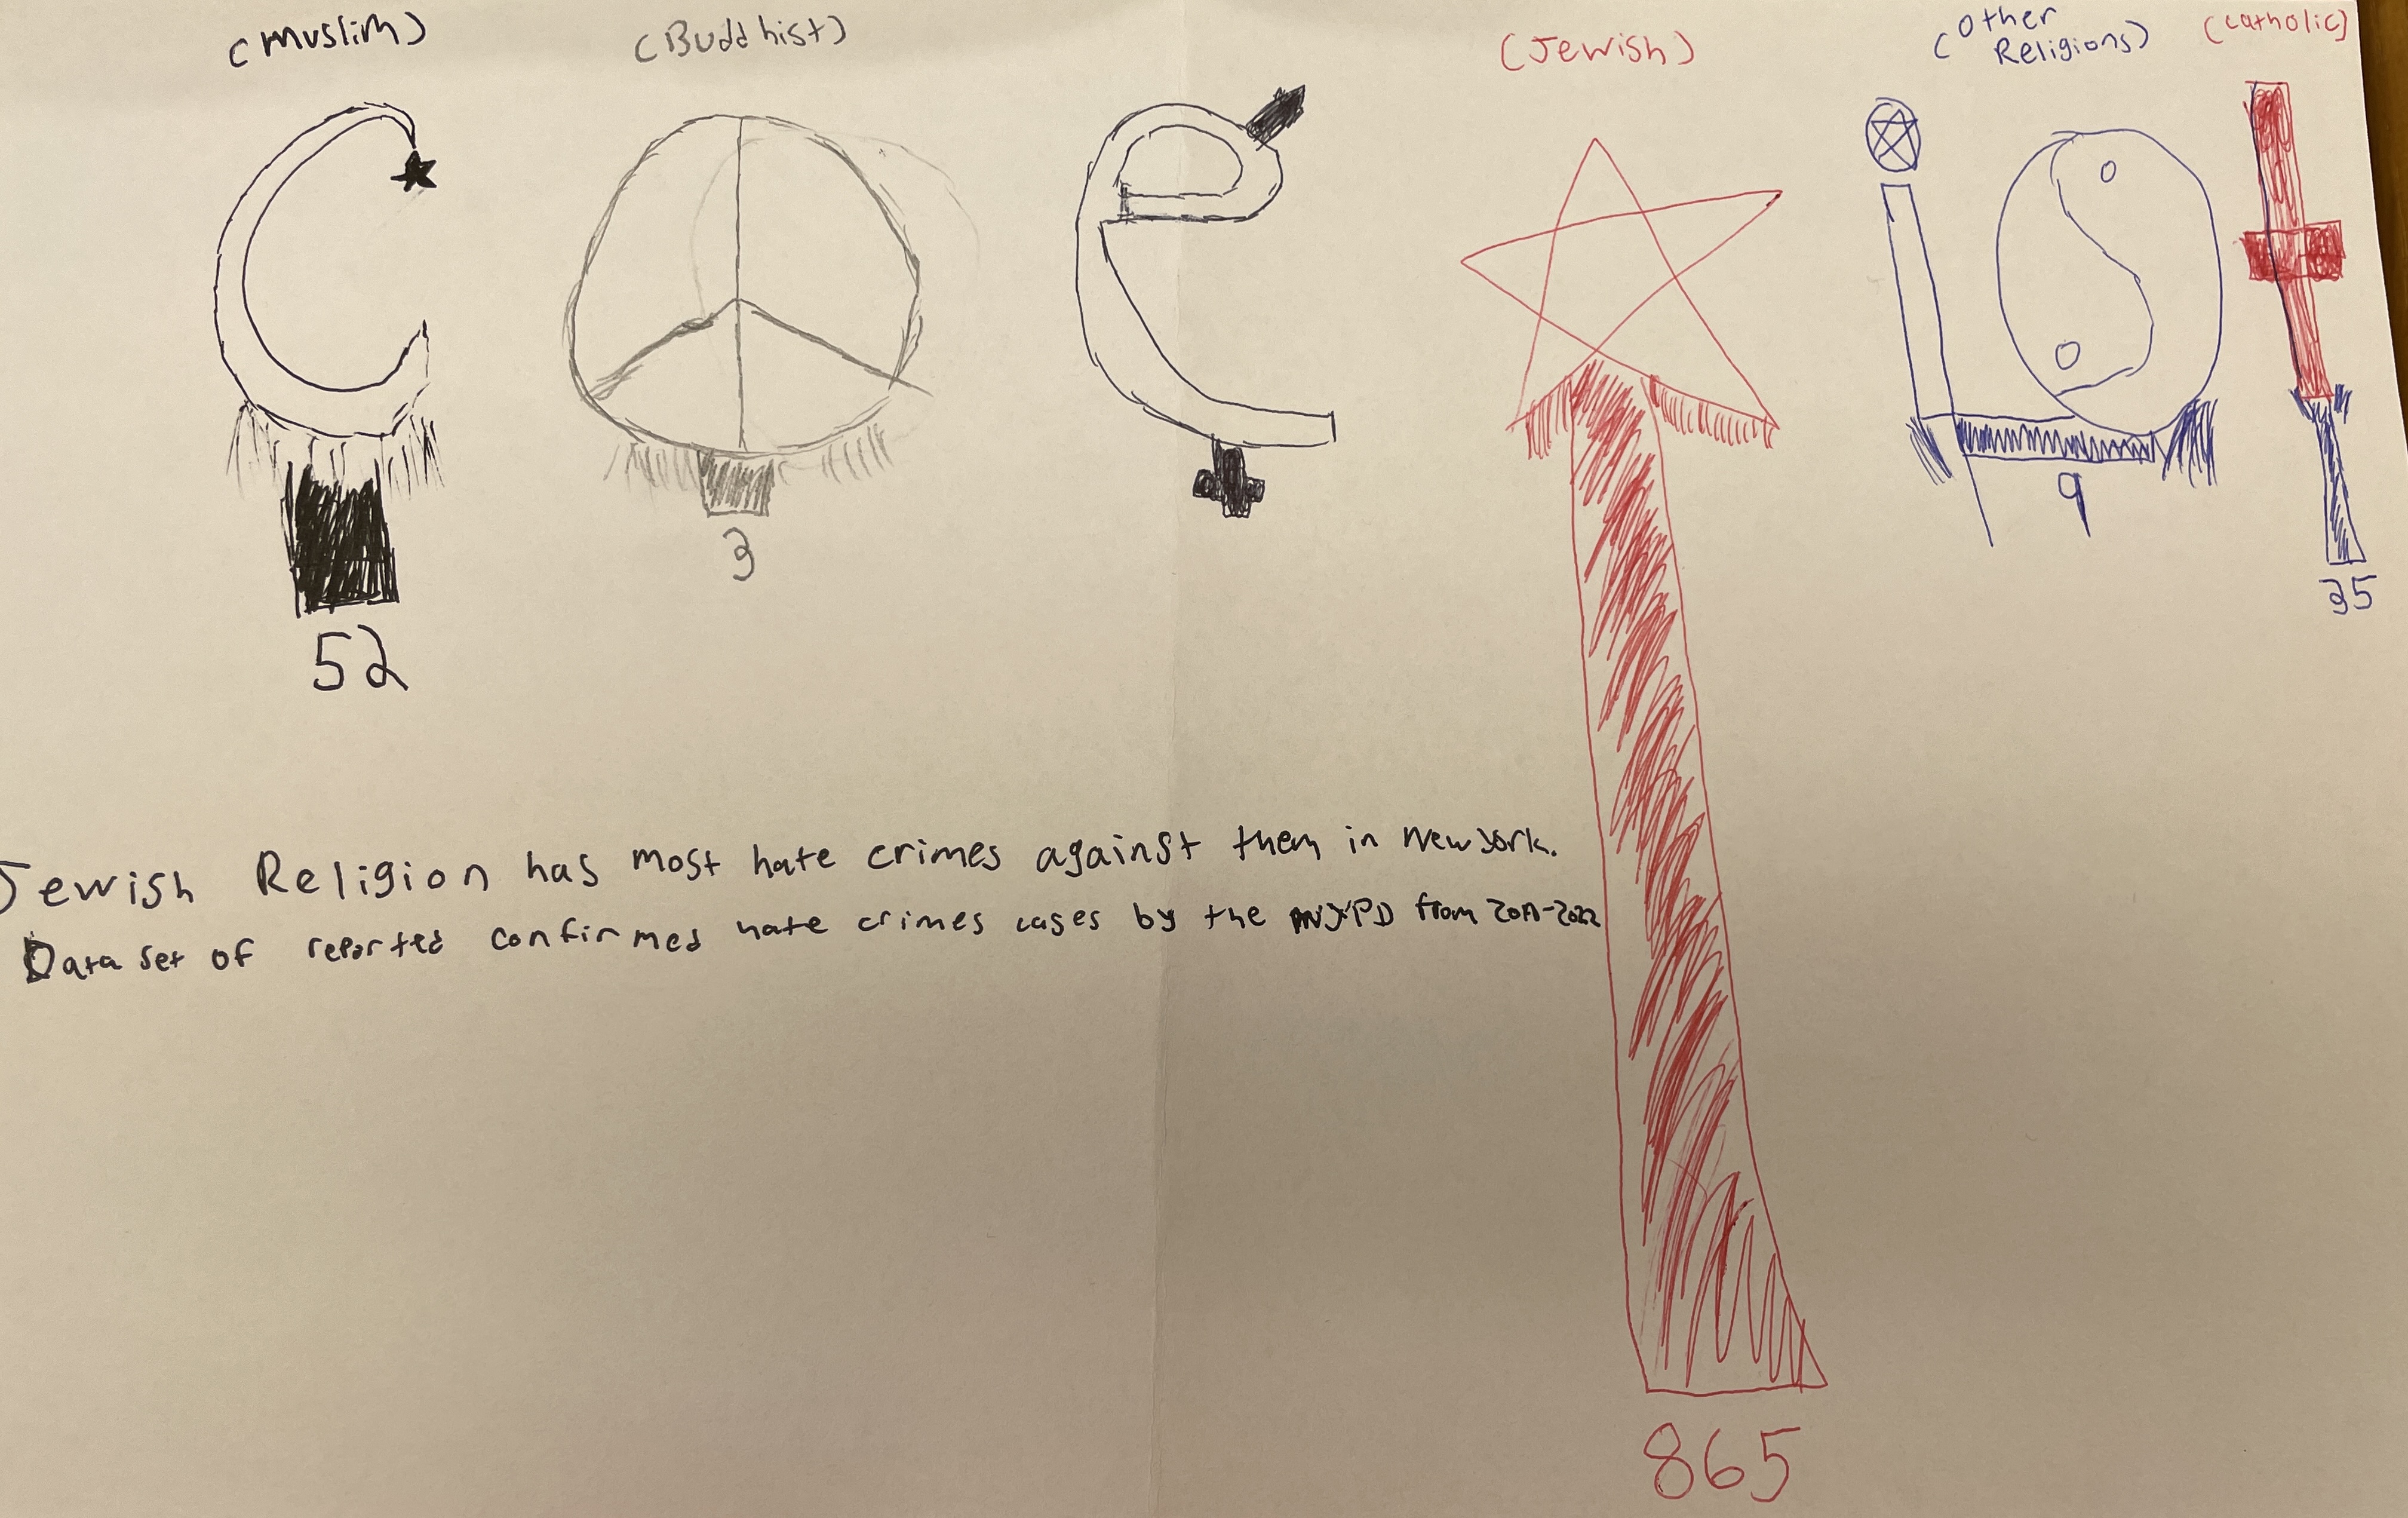 (Muslim)
(Buddhist)
(Jewish)
(Other
Religions)
(Catholic)
52
3
9
35
Jewish Religion has most hate crimes against them in New York.
Data set of reported confirmed hate crimes cases by the NYPD from
865